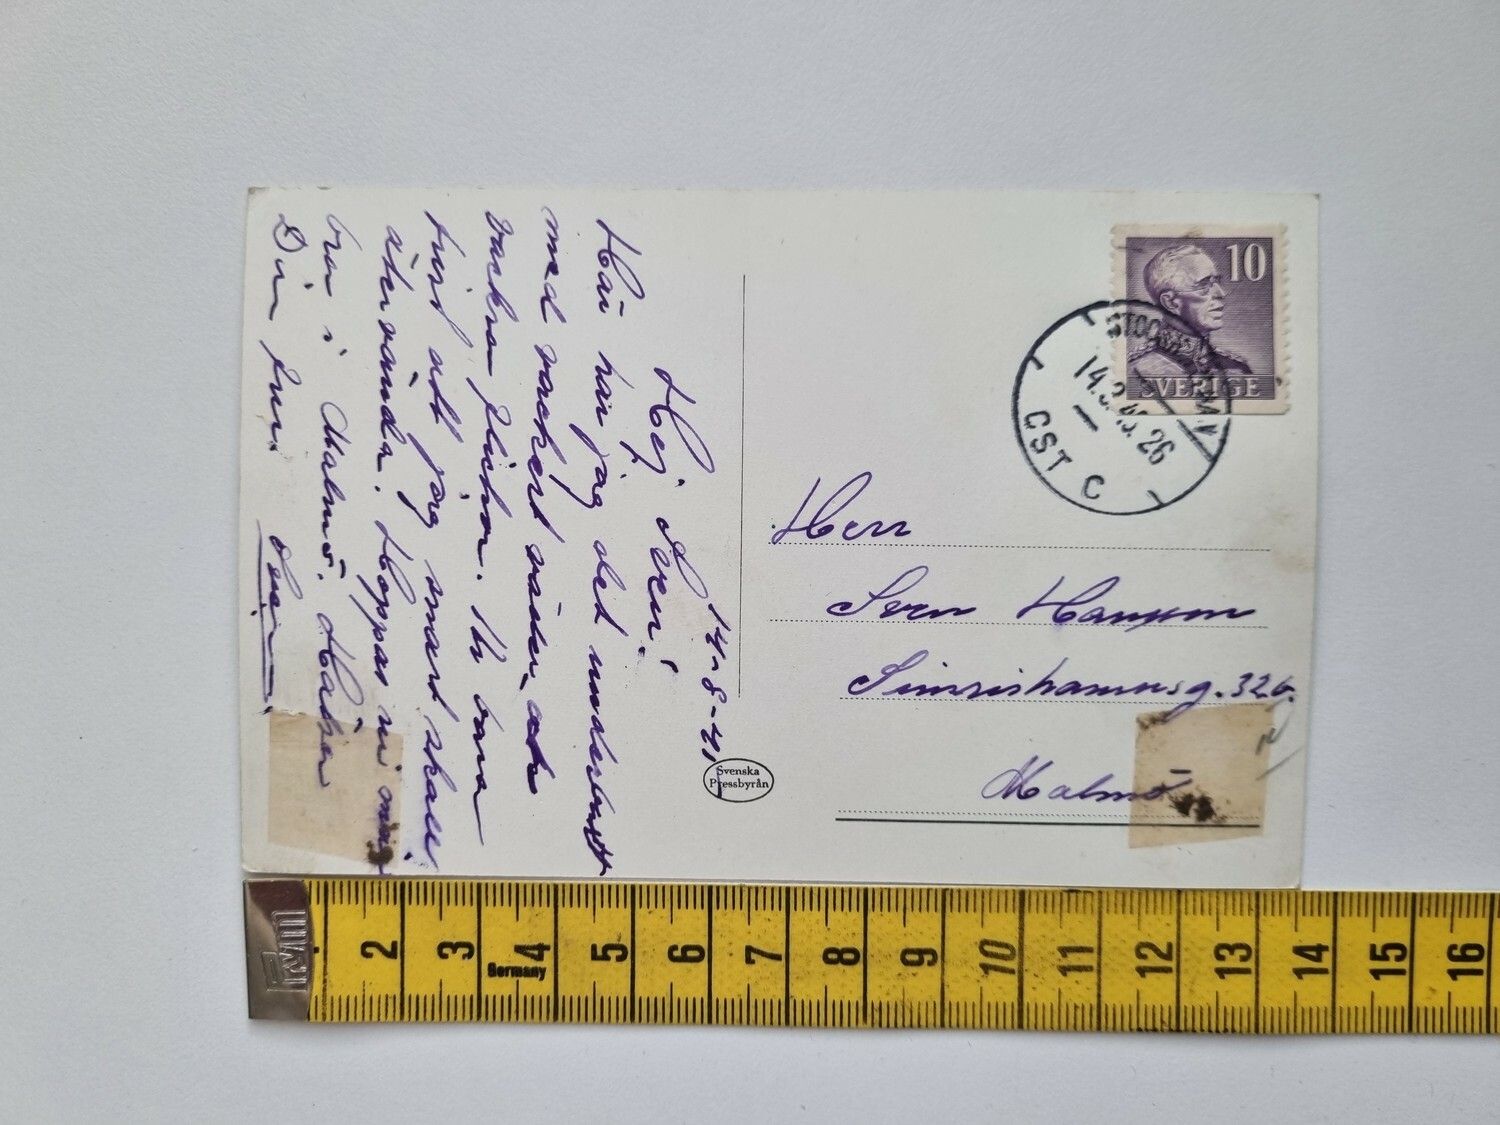 14-8-41
Hej Sven!
Här har jag det underbart
med vackert väder och
vackra flickor. Ih bara
trist att jag snart skall
återvända. Hoppas ni mår
bra i Malmö. Hälsn
Din
Svenska
Pressbyrån
10
SVERIGE
14.8.41.26
CST C
Herr
Sven Hansson
Simrishamnsg. 32 b.
Malmö
prym
2 3 4 5 6 7 8 9 10 11 12 13 14 15 16
Germany